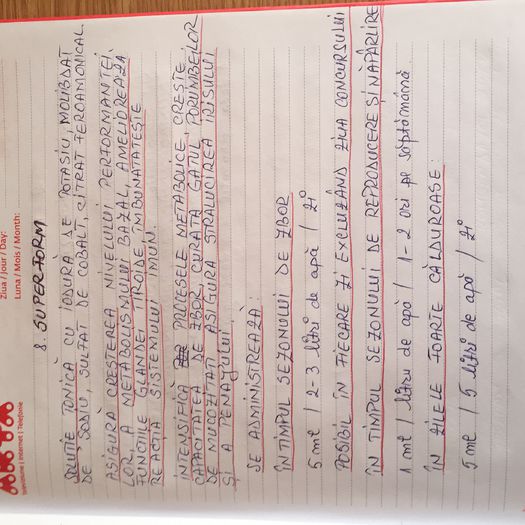 Ziua / Jour / Day:
Luna / Mois / Month:
8. SUPERFORM
SOLUȚIE IONICĂ CU IODURĂ DE POTASIU, MOLIBDAT
DE SODIU, SULFAT DE COBALT, CITRAT FEROAMONICAL.
ASIGURĂ CREȘTEREA NIVELULUI PERFORMANȚEI
LOR, A METABOLISMULUI BAZAL, AMELIOREAZA
FUNCȚIILE GLANDEI TIROIDE, ÎMBUNATATEȘTE
REACȚIA SISTEMULUI IMUN.
INTENSIFICĂ PROCESELE METABOLICE, CREȘTE
CAPACITATEA DE ZBOR, CURĂȚĂ GATUL PORUMBEILOR
DE MUCOZITATI, ASIGURĂ STRALUCIREA IRISULUI
ȘI A PENAJULUI.
SE ADMINISTREAZĂ:
ÎN TIMPUL SEZONULUI DE ZBOR
5 ml / 2-3 litri de apă / zi
POSIBIL ÎN FIECARE ZI EXCLUZÂND ZIUA CONCURSULUI
ÎN TIMPUL SEZONULUI DE REPRODUCERE ȘI NĂPÂRLIRE
1 ml / litru de apă / 1-2 ori pe săptămână
ÎN ZILELE FOARTE CĂLDUROASE:
5 ml / 5 litri de apă / zi
Întrevedere | Internet | Telefonie